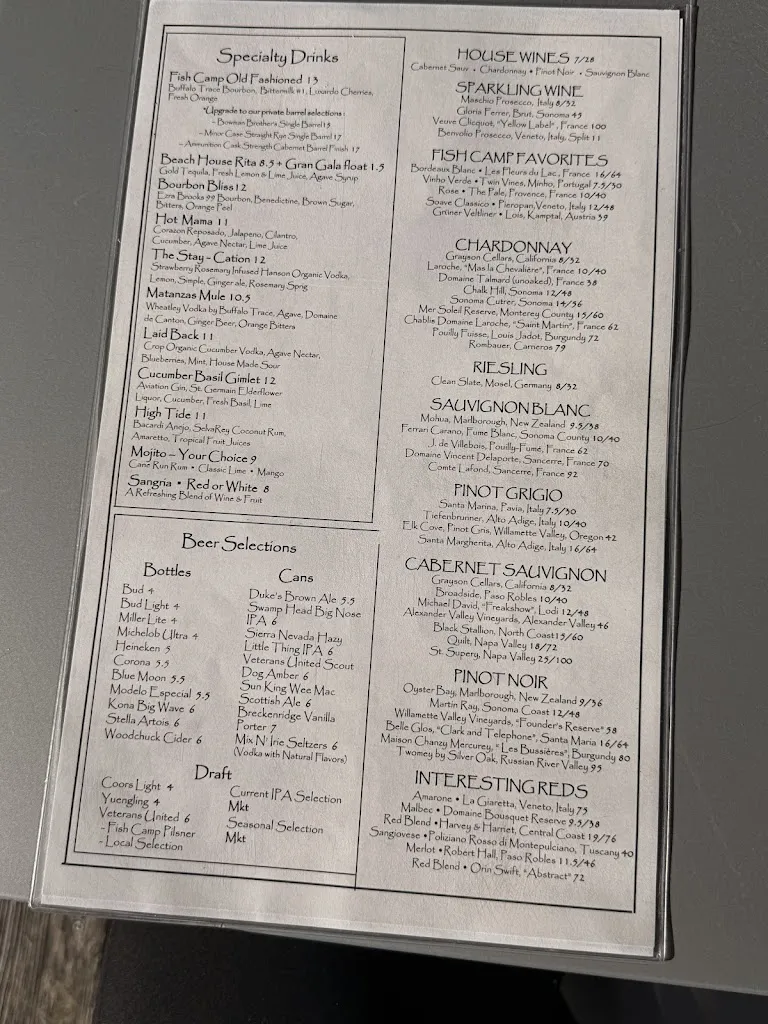 Specialty Drinks
Fish Camp Old Fashioned 13
Buffalo Trace Bourbon, Bittermilk #1, Luxardo Cherries,
Fresh Orange
*Upgrade to our private barrel selections:
~ Bowman Brothers Single Barrel 15
~ Minor Case Straight Rye Single Barrel 17
~ Ammunition Cask Strength Cabernet Barrel Finish 17
Beach House Rita 8.5 + Gran Gala float 1.5
Gold Tequila, Fresh Lemon & Lime Juice, Agave Syrup
Bourbon Bliss 12
Ezra Brooks 99 Bourbon, Benedictine, Brown Sugar,
Bitters, Orange Peel
Hot Mama 11
Corazon Reposado, Jalapeno, Cilantro,
Cucumber, Agave Nectar, Lime Juice
The Stay - Cation 12
Strawberry Rosemary Infused Hanson Organic Vodka,
Lemon, Simple, Ginger ale, Rosemary Sprig
Matanzas Mule 10.5
Wheatley Vodka by Buffalo Trace, Agave, Domaine
de Canton, Ginger Beer, Orange Bitters
Laid Back 11
Crop Organic Cucumber Vodka, Agave Nectar,
Blueberries, Mint, House Made Sour
Cucumber Basil Gimlet 12
Aviation Gin, St. Germain Elderflower
Liquor, Cucumber, Fresh Basil, Lime
High Tide 11
Bacardi Anejo, SelvaRey Coconut Rum,
Amaretto, Tropical Fruit Juices
Mojito – Your Choice 9
Cane Run Rum • Classic Lime • Mango
Sangria • Red or White 8
A Refreshing Blend of Wine & Fruit
Beer Selections
Bottles
Bud 4
Bud Light 4
Miller Lite 4
Michelob Ultra 4
Heineken 5
Corona 5.5
Blue Moon 5.5
Modelo Especial 5.5
Kona Big Wave 6
Stella Artois 6
Woodchuck Cider 6
Cans
Duke's Brown Ale 5.5
Swamp Head Big Nose
IPA 6
Sierra Nevada Hazy
Little Thing IPA 6
Veterans United Scout
Dog Amber 6
Sun King Wee Mac
Scottish Ale 6
Breckenridge Vanilla
Porter 7
Mix N' Irie Seltzers 6
(Vodka with Natural Flavors)
Draft
Coors Light 4
Yuengling 4
Veterans United 6
- Fish Camp Pilsner
- Local Selection
Current IPA Selection
Mkt
Seasonal Selection
Mkt
HOUSE WINES 7/28
Cabernet Sauv • Chardonnay • Pinot Noir • Sauvignon Blanc
SPARKLING WINE
Maschio Prosecco, Italy 8/32
Gloria Ferrer, Brut, Sonoma 45
Veuve Clicquot, "Yellow Label", France 100
Benvolio Prosecco, Veneto, Italy, Split 11
FISH CAMP FAVORITES
Bordeaux Blanc • Les Fleurs du Lac, France 16/64
Vinho Verde • Twin Vines, Minho, Portugal 7.5/30
Rose • The Pale, Provence, France 10/40
Soave Classico • Pieropan, Veneto, Italy 12/48
Grüner Veltliner • Lois, Kamptal, Austria 39
CHARDONNAY
Grayson Cellars, California 8/32
Laroche, "Mas la Chevalière", France 10/40
Domaine Talmard (unoaked), France 38
Chalk Hill, Sonoma 12/48
Sonoma Cutrer, Sonoma 14/56
Mer Soleil Reserve, Monterey County 15/60
Chablis Domaine Laroche, "Saint Martin", France 62
Pouilly Fuisse, Louis Jadot, Burgundy 72
Rombauer, Carneros 79
RIESLING
Clean Slate, Mosel, Germany 8/32
SAUVIGNON BLANC
Mohua, Marlborough, New Zealand 9.5/38
Ferrari Carano, Fume Blanc, Sonoma County 10/40
J. de Villebois, Pouilly-Fumé, France 62
Domaine Vincent Delaporte, Sancerre, France 70
Comte Lafond, Sancerre, France 92
PINOT GRIGIO
Santa Marina, Pavia, Italy 7.5/30
Tiefenbrunner, Alto Adige, Italy 10/40
Elk Cove, Pinot Gris, Willamette Valley, Oregon 42
Santa Margherita, Alto Adige, Italy 16/64
CABERNET SAUVIGNON
Grayson Cellars, California 8/32
Broadside, Paso Robles 10/40
Michael David, "Freakshow", Lodi 12/48
Alexander Valley Vineyards, Alexander Valley 46
Black Stallion, North Coast 15/60
Quilt, Napa Valley 18/72
St. Supery, Napa Valley 25/100
PINOT NOIR
Oyster Bay, Marlborough, New Zealand 9/36
Martin Ray, Sonoma Coast 12/48
Willamette Valley Vineyards, "Founder's Reserve" 58
Belle Glos, "Clark and Telephone", Santa Maria 16/64
Maison Chanzy Mercurey, "Les Bussières", Burgundy 80
Twomey by Silver Oak, Russian River Valley 95
INTERESTING REDS
Amarone • La Giaretta, Veneto, Italy 75
Malbec • Domaine Bousquet Reserve 9.5/38
Red Blend • Harvey & Harriet, Central Coast 19/76
Sangiovese • Poliziano Rosso di Montepulciano, Tuscany 40
Merlot • Robert Hall, Paso Robles 11.5/46
Red Blend • Orin Swift, "Abstract" 72